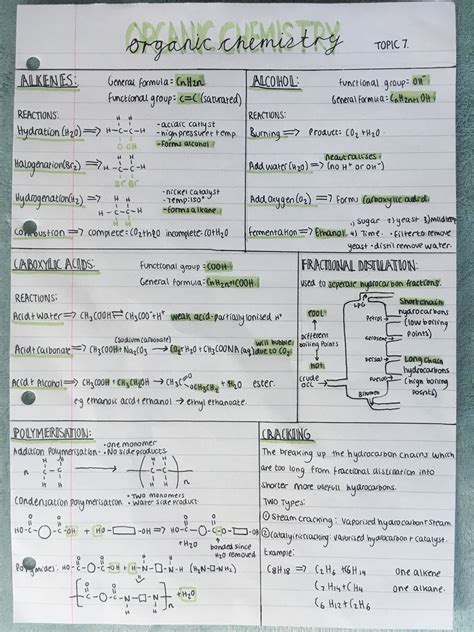 ORGANIC CHEMISTRY
organic chemistry
TOPIC 7.
ALKENES:
General formula = CnH2n
Functional group = C=C (saturated)
REACTIONS:
Hydration (H2O) ⟹
- acidic catalyst
- high pressure + temp
- forms alcohol
Halogenation (Br2) ⟹
Br Br
Hydrogenation (H2) ⟹
- nickel catalyst
- Temp: 150°
- forms alkane
Combustion ⟹ complete = CO2 + H2O incomplete = CO + H2O
ALCOHOL:
Functional group = OH
General formula = CnH2n+1 OH
REACTIONS:
Burning ⟹ Product: CO2 + H2O
Add water (H2O) ⟹ Neutralises
(no H+ or OH-)
Add oxygen (O2) ⟹ Forms carboxylic acid
1) sugar 2) yeast 3)
fermentation ⟹ Ethanol 4) Time - filter to remove
yeast - distil remove water.
CABOXYLIC ACIDS:
Functional group = COOH
General formula = CnH2n+1COOH
REACTIONS:
Acid + Water ⟹ CH3COOH ⇌ CH3COO- + H+ weak acid - partially ionised H+
(sodium carbonate)
Acid + carbonate ⟹ CH3COOH + Na2CO3 → CO2 + H2O + CH3COONa (aq) will bubble due to CO2
Acid + Alcohol ⟹ CH3COOH + CH3CH2OH → CH3C O OCH2CH3 + H2O ester.
eg ethanoic acid + ethanol → ethyl ethanoate.
FRACTIONAL DISTILLATION:
used to seperate hydrocarbon fractions.
cool
different
boiling points
hot
crude
oil
LPG
Petrol
Kerosene
Diesel
Fuel oil
Bitumen
Short chain
hydrocarbons
(low boiling
points)
Long chain
hydrocarbons
(high boiling
points)
POLYMERISATION:
Addition Polymerisation
- one monomer
- No side products
Condensation Polymerisation
- Two monomers
- Water side product
+H2O
bonded since
H2O removed
Polyamides:
(H2N-□-NH2)
+H2O
CRACKING
The breaking up the hydrocarbon chains which
are too long from fractional distillation into
shorter more usefull hydrocarbons.
TWO TYPES:
① Steam cracking: vaporised hydrocarbon + steam.
② catalytic cracking: vaporised hydrocarbon + catalyst.
Example:
C8H18 ⟹ C2H6 + C6H14 one alkane
C7H14 + CH4 one alkane.
C6H12 + C2H6